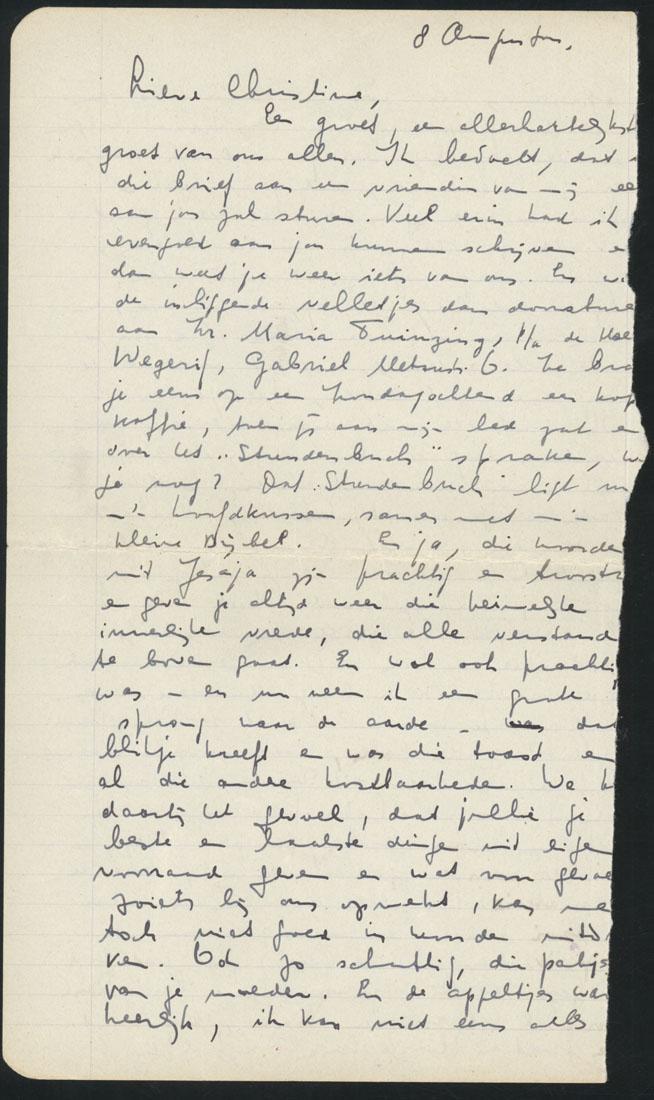 8 Augustus.
Lieve Christine,
Een groet, een allerhartelijkst
groet van ons allen. Ik bedoelt, dat
die brief aan een vriendin van mij
aan jou zal sturen. Veel erin had ik
evengoed aan jou kunnen schrijven
dan weet je weer iets van ons. En
de inliggende velletjes dan
aan Zr. Maria Tuinzing, p/a de
Wegerif, Gabriel Metsustr. 6. Ze
je eens op een Zondagochtend een kop
koffie, toen je aan mijn bed zat en
over het "Stundenbuch" spraken,
je nog? Dat "Stundenbuch" ligt
mijn hoofdkussen, samen met mijn
kleine Bijbel. En ja, die woorden
uit Jesaja zijn prachtig en
en geven je altijd weer die heimelijke
innerlijke vrede, die alle verstand
te boven gaat. En wat ook
was – en nu neem ik een grote
sprong naar de aarde –
blikje kreeft en was die toast en
al die andere kostbaarheden. We
daarbij het gevoel, dat jullie je
beste en laatste dingen uit eigen
voorraad geven en wat voor
zoiets bij ons opwekt, kan
toch niet goed in woorden
ven. Och zo schattig, die
van je moeder. En de appeltjes
heerlijk, ik kan niet eens alles